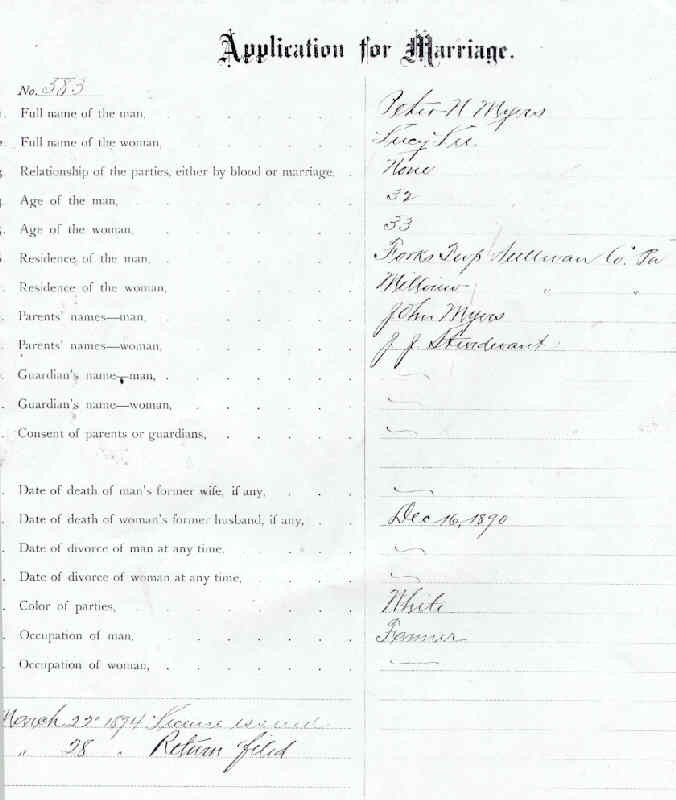 Application for Marriage.
No. 383
Full name of the man, Peter N Myers
Full name of the woman, Lucy Lee.
Relationship of the parties, either by blood or marriage, None
Age of the man, 32
Age of the woman, 33
Residence of the man, Forks Twp Sullivan Co. Pa
Residence of the woman, Millview " "
Parents' names—man, John Myers
Parents' names—woman, J. J. Sturdevant
Guardian's name—man, —
Guardian's name—woman, —
Consent of parents or guardians, —
Date of death of man's former wife, if any, —
Date of death of woman's former husband, if any, Dec 16, 1890
Date of divorce of man at any time, —
Date of divorce of woman at any time, —
Color of parties, White
Occupation of man, Farmer
Occupation of woman, —
March 22" 1894 License issued
" 28 " Return filed